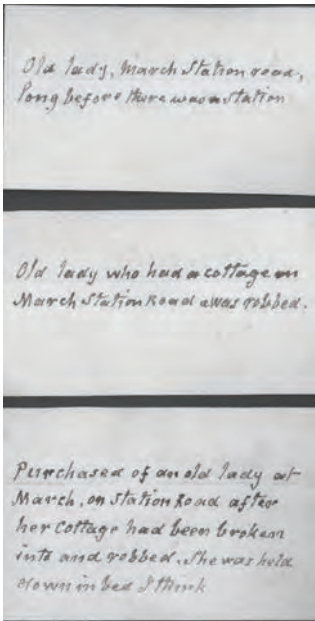 Old lady, March Station road,
long before there was a station
Old lady who had a cottage on
March Station Road & was robbed.
Purchased of an old lady at
March, on Station Road after
her Cottage had been broken
into and robbed. She was held
down in bed I think